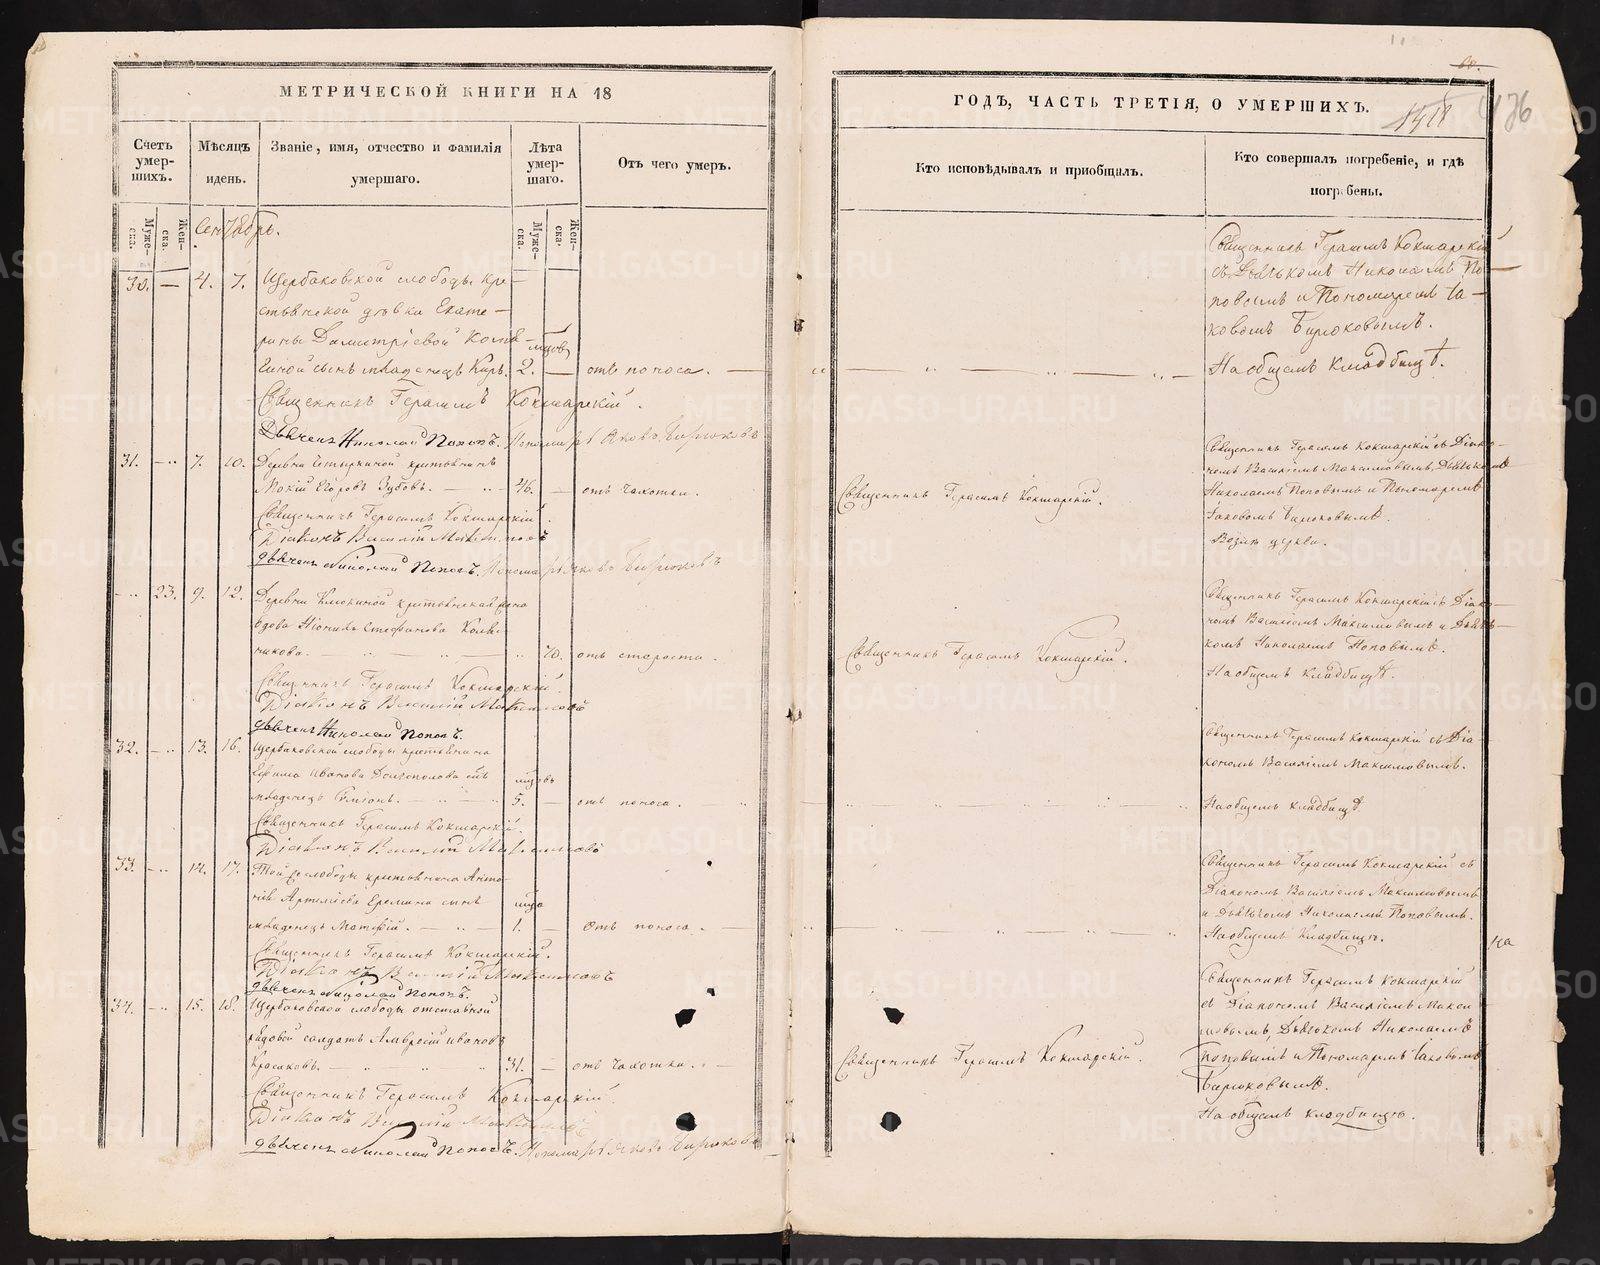 МЕТРИЧЕСКОЙ КНИГИ НА 18
Счетъ умер-шихъ.
Мѣсяцъ идень.
Званіе, имя, отчество и фамилія умершаго.
Лѣта умер-шаго.
Отъ чего умеръ.
Муже-ска.
Жен-ска.
Муже-ска.
Жен-ска.
Сентябрь.
30. — 4. 7. Щербаковской слободы кре-
стьянской дѣвки Екате-
рины Димитріевой
сынъ младенецъ 2. — отъ поноса. —
Священникъ Герасимъ Кокшарскій.
Дьячекъ Николай Поповъ. Пономарь Яковъ Бирюковъ
31. — 7. 10. Деревни крестьянинъ
Мокій Егоровъ Зубовъ. — 46. — отъ чахотки.
Священникъ Герасимъ Кокшарскій.
Діаконъ Василій Максимовъ
Дьячекъ Николай Поповъ. Пономарь Яковъ Бирюковъ
— 23. 9. 12. Деревни Клюкиной крестьянская жена
вдова Стефанова
70. отъ старости.
Священникъ Герасимъ Кокшарскій.
Діаконъ Василій Максимовъ
Дьячекъ Николай Поповъ.
32. — 13. 16. Щербаковской слободы крестьянина
Ефима Иванова Долгополова сынъ
младенецъ Симеонъ. — 5. — отъ поноса.
Священникъ Герасимъ Кокшарскій.
Діаконъ Василій Максимовъ
33. — 14. 17. Той же слободы крестьянина Анто-
нія Артеміева Еремина сынъ
младенецъ Матѳій. — 1. — отъ поноса. —
Священникъ Герасимъ Кокшарскій.
Діаконъ Василій Максимовъ
Дьячекъ Николай Поповъ.
34. — 15. 18. Щербаковской слободы отставной
рядовой солдатъ Лаврентій Ивановъ
31. — отъ чахотки. —
Священникъ Герасимъ Кокшарскій.
Діаконъ Василій Максимовъ
Дьячекъ Николай Поповъ. Пономарь Яковъ Бирюковъ
ГОДЪ, ЧАСТЬ ТРЕТІЯ, О УМЕРШИХЪ.
Кто исповѣдывалъ и приобщалъ.
Кто совершалъ погребеніе, и гдѣ погребены.
Священникъ Герасимъ Кокшарскій
съ Дьячькомъ Николаемъ По-
повымъ и Пономаремъ Іа-
ковомъ Бирюковымъ.
На общемъ кладбищѣ.
Священникъ Герасимъ Кокшарскій съ Діако-
номъ Василіемъ Максимовымъ, Дьячькомъ
Священникъ Герасимъ Кокшарскій.
Николаемъ Поповымъ и Пономаремъ
Іаковомъ Бирюковымъ.
Возлѣ церкви.
Священникъ Герасимъ Кокшарскій съ Діако-
номъ Василіемъ Максимовымъ и Дьячь-
Священникъ Герасимъ Кокшарскій.
комъ Николаемъ Поповымъ.
На общемъ кладбищѣ.
Священникъ Герасимъ Кокшарскій съ Діа-
кономъ Василіемъ Максимовымъ.
На общемъ кладбищѣ
Священникъ Герасимъ Кокшарскій съ
Діакономъ Василіемъ Максимовымъ
и Дьячькомъ Николаемъ Поповымъ.
На общемъ Кладбищѣ.
на
Священникъ Герасимъ Кокшарскій
съ Діакономъ Василіемъ Макси
мовымъ, Дьячькомъ Николаемъ
Священникъ Герасимъ Кокшарскій.
Поповымъ и Пономаремъ Іаковомъ
Бирюковымъ.
На общемъ кладбищѣ.
METRIKI.GASO-URAL.RU